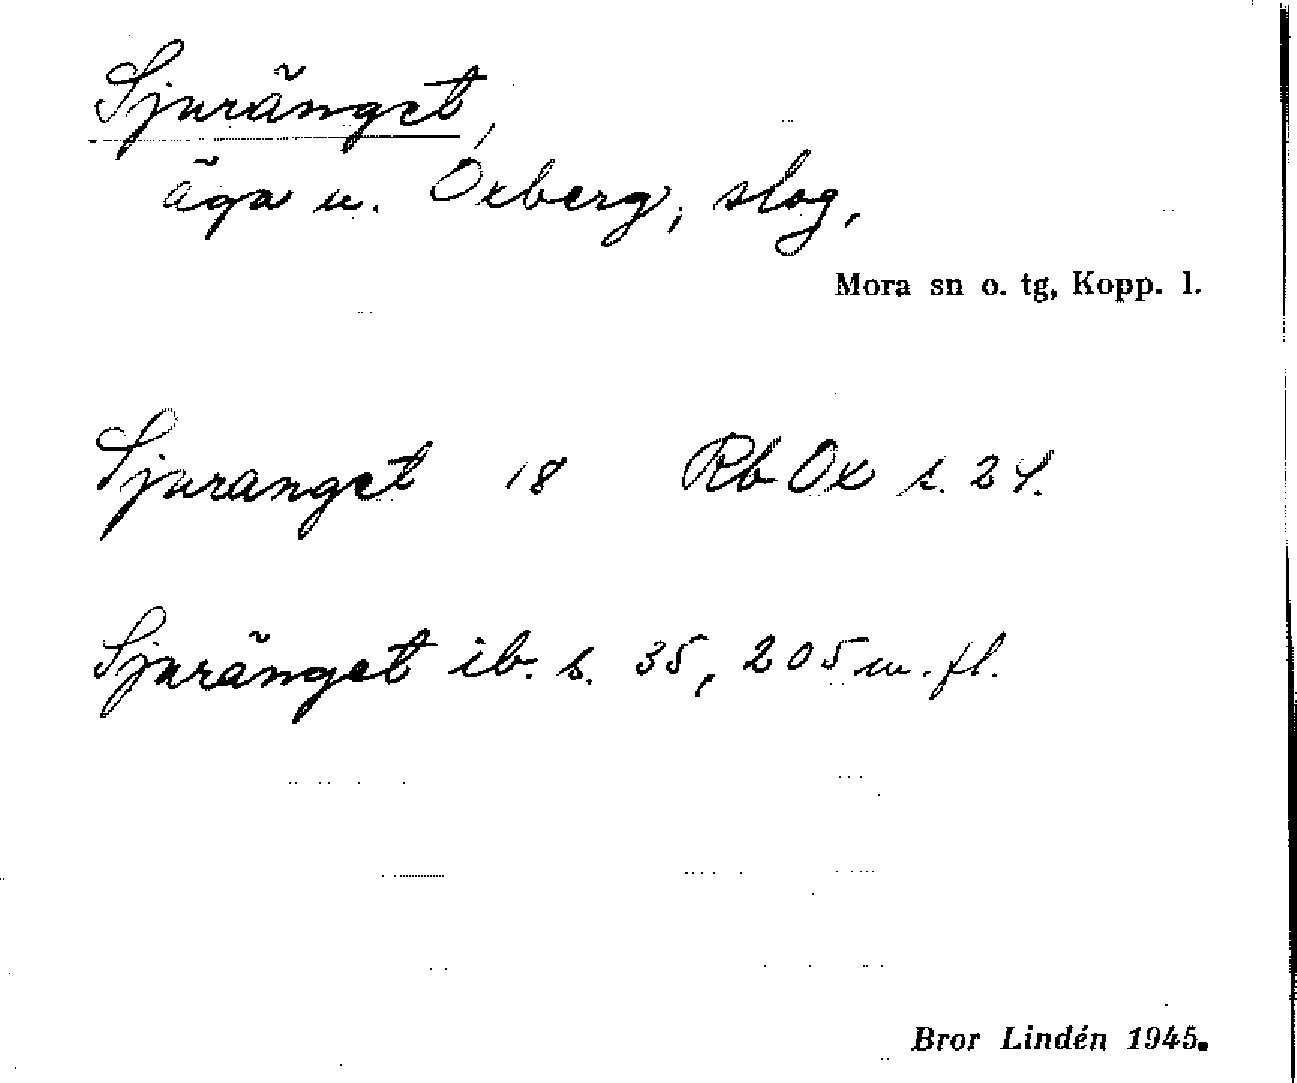 Sjuränget,
äga u. Oxberg, slog,
Mora sn o. tg, Kopp. l.
Sjuranget 18 Rb Ox s. 24.
Sjuränget ib. s. 35, 205 m. fl.
Bror Lindén 1945.